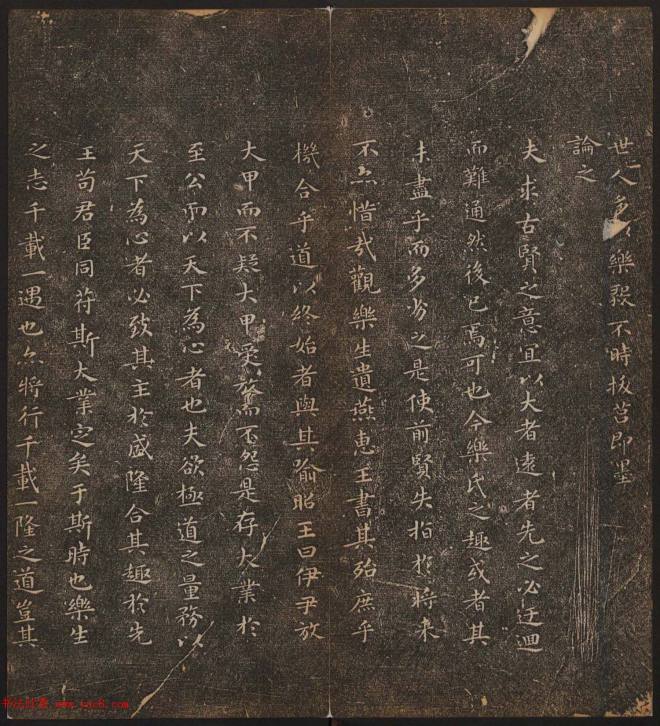 世人多樂毅不時拔莒即墨
論之
夫求古賢之意宜以大者遠者先之必迂迴
而難通然後已焉可也今樂氏之趣或者其
未盡乎而多劣之是使前賢失指於將來
不亦惜哉觀樂生遺燕惠王書其殆庶乎
機合乎道以終始者與其喻昭王曰伊尹放
大甲而不疑大甲受放而不怨是存大業於
至公而以天下為心者也夫欲極道之量務以
天下為心者必致其主於盛隆合其趣於先
王苟君臣同苻斯大業定矣于斯時也樂生
之志千載一遇也亦將行千載一隆之道豈其
书法欣赏 www.yac8.com